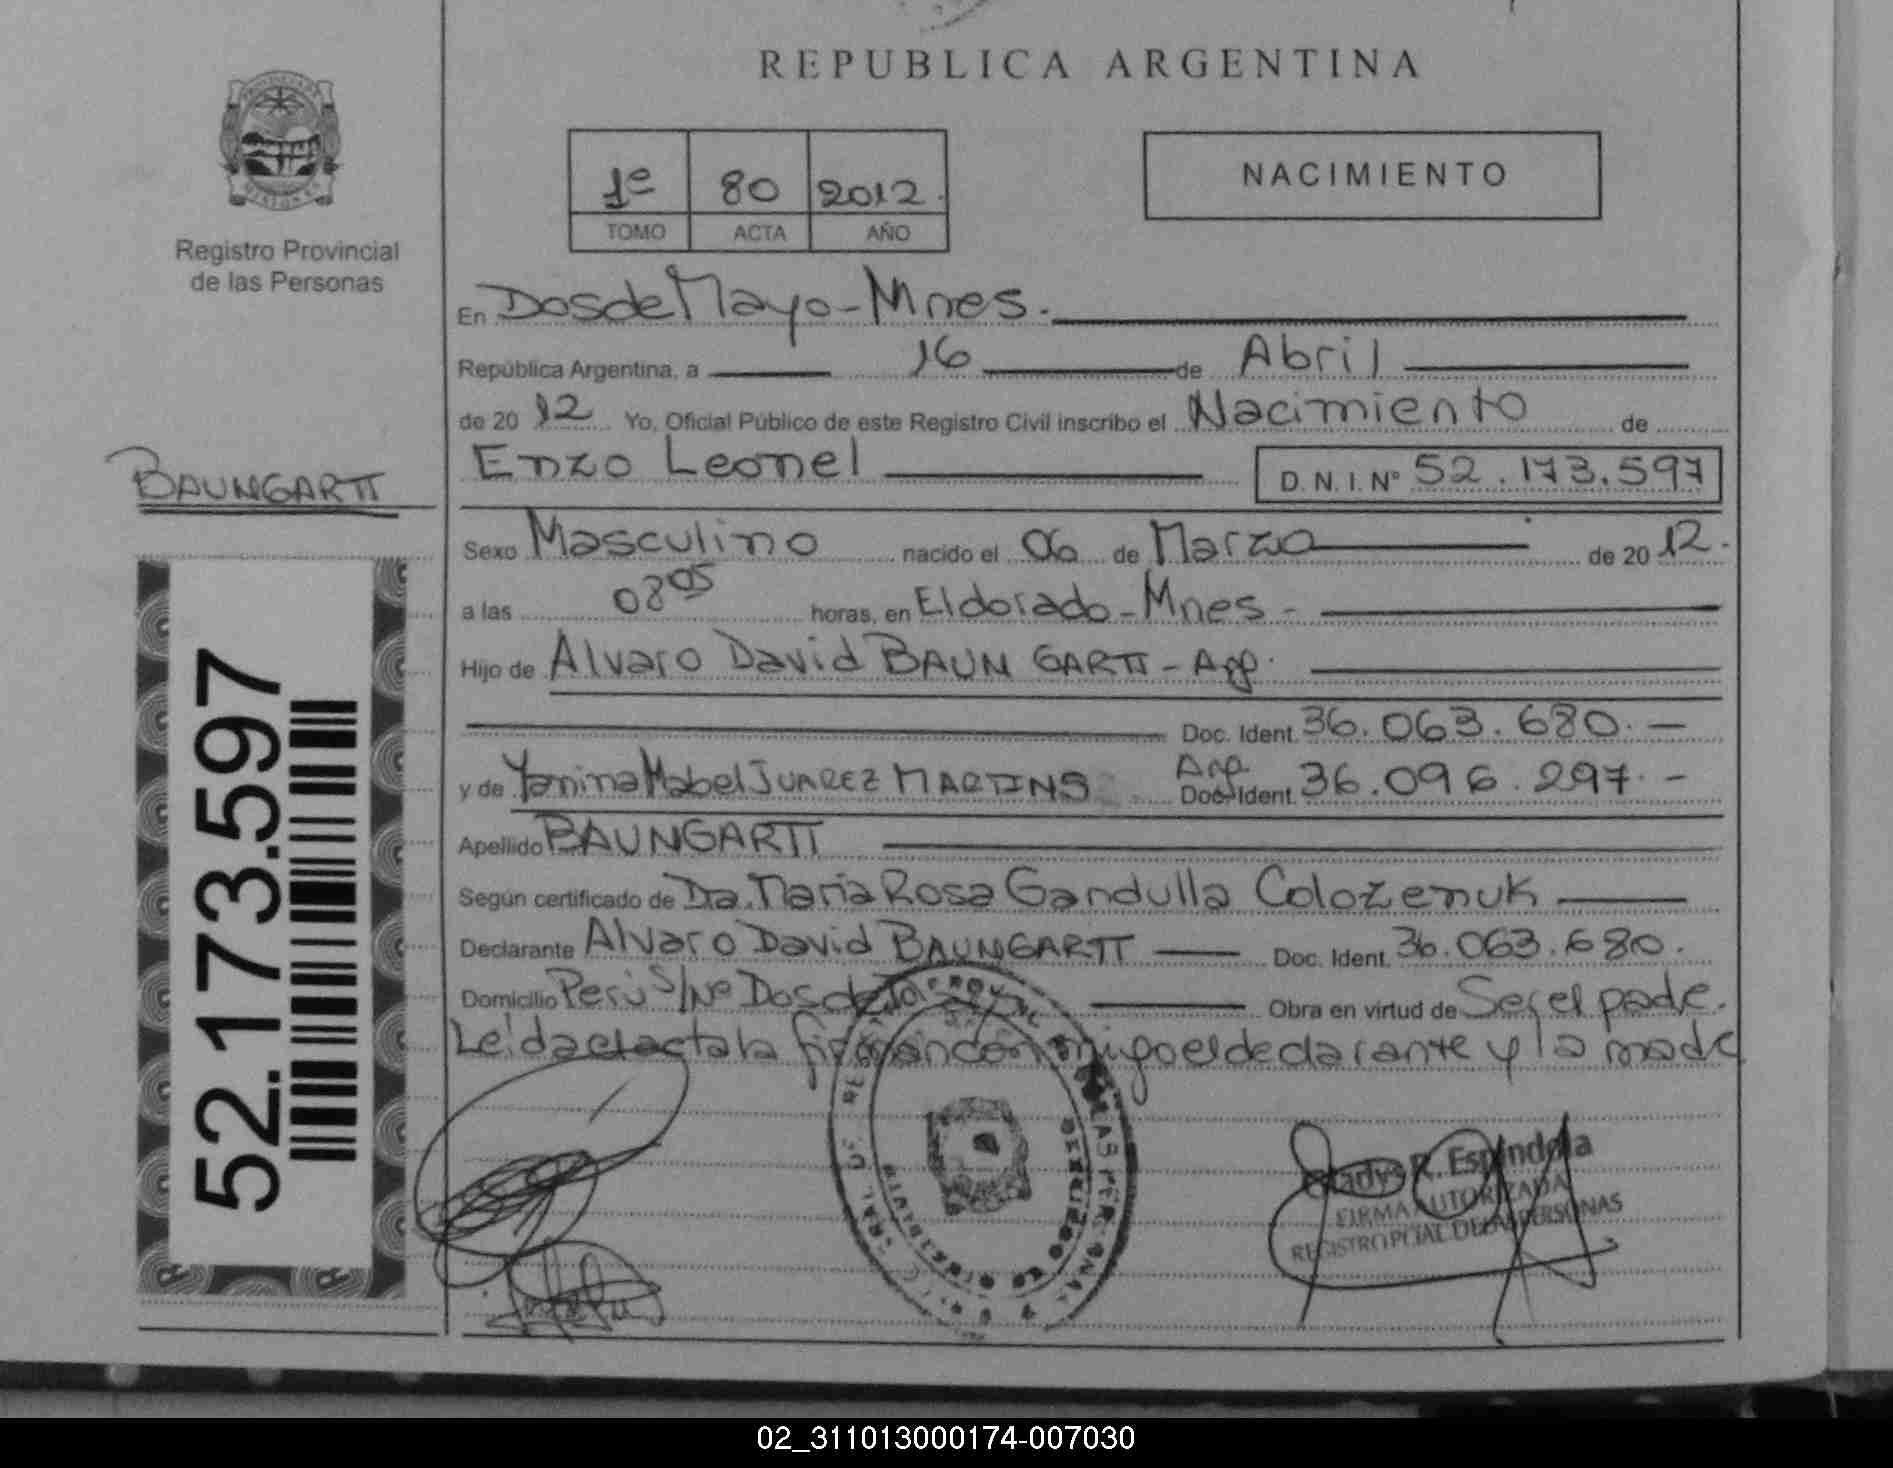 REPUBLICA ARGENTINA
Registro Provincial
de las Personas
1º 80 2012.
TOMO ACTA AÑO
NACIMIENTO
En Dos de Mayo - Mnes.
República Argentina, a 16 de Abril
de 2012 Yo, Oficial Público de este Registro Civil inscribo el Nacimiento de
Enzo Leonel D.N.I. Nº 52.173.597
BAUNGARTT
Sexo Masculino nacido el 06 de Marzo de 2012.
a las 08 05 horas, en Eldorado - Mnes -
Hijo de Alvaro David BAUNGARTT - Arg.
Doc. Ident. 36.063.680. -
y de Yanina Mabel JUAREZ MARTINS Arg. Doc. Ident. 36.096.297. -
Apellido BAUNGARTT
Según certificado de Dra. Maria Rosa Gandulla Colozenuk
Declarante Alvaro David BAUNGARTT Doc. Ident. 36.063.680.
Domicilio Perú S/Nº Dos de Obra en virtud de Ser el padre.
Leida el acta la firman con migo el declarante y la madre
52.173.597
Gladys R. Espindola
FIRMA AUTORIZADA
REGISTRO PCIAL. DE LAS PERSONAS
02_311013000174-007030